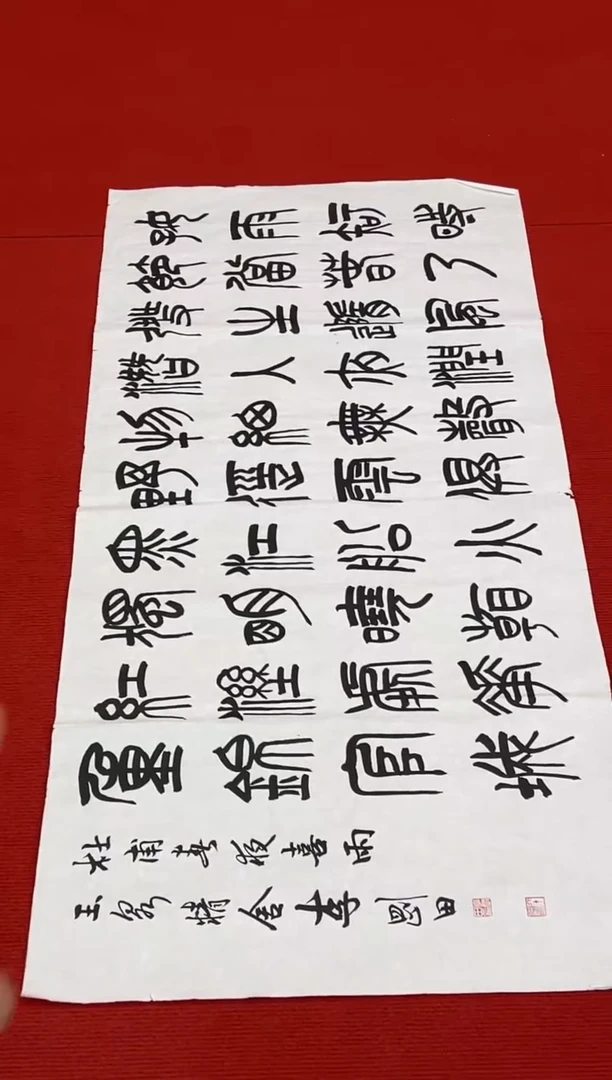 好雨知時
節當春乃
發生隨風
潛入夜潤
物細無聲
野徑雲俱
黑江船火
獨明曉看
紅濕處花
重錦官城
杜甫春夜喜雨
玉泉精舍李剛田